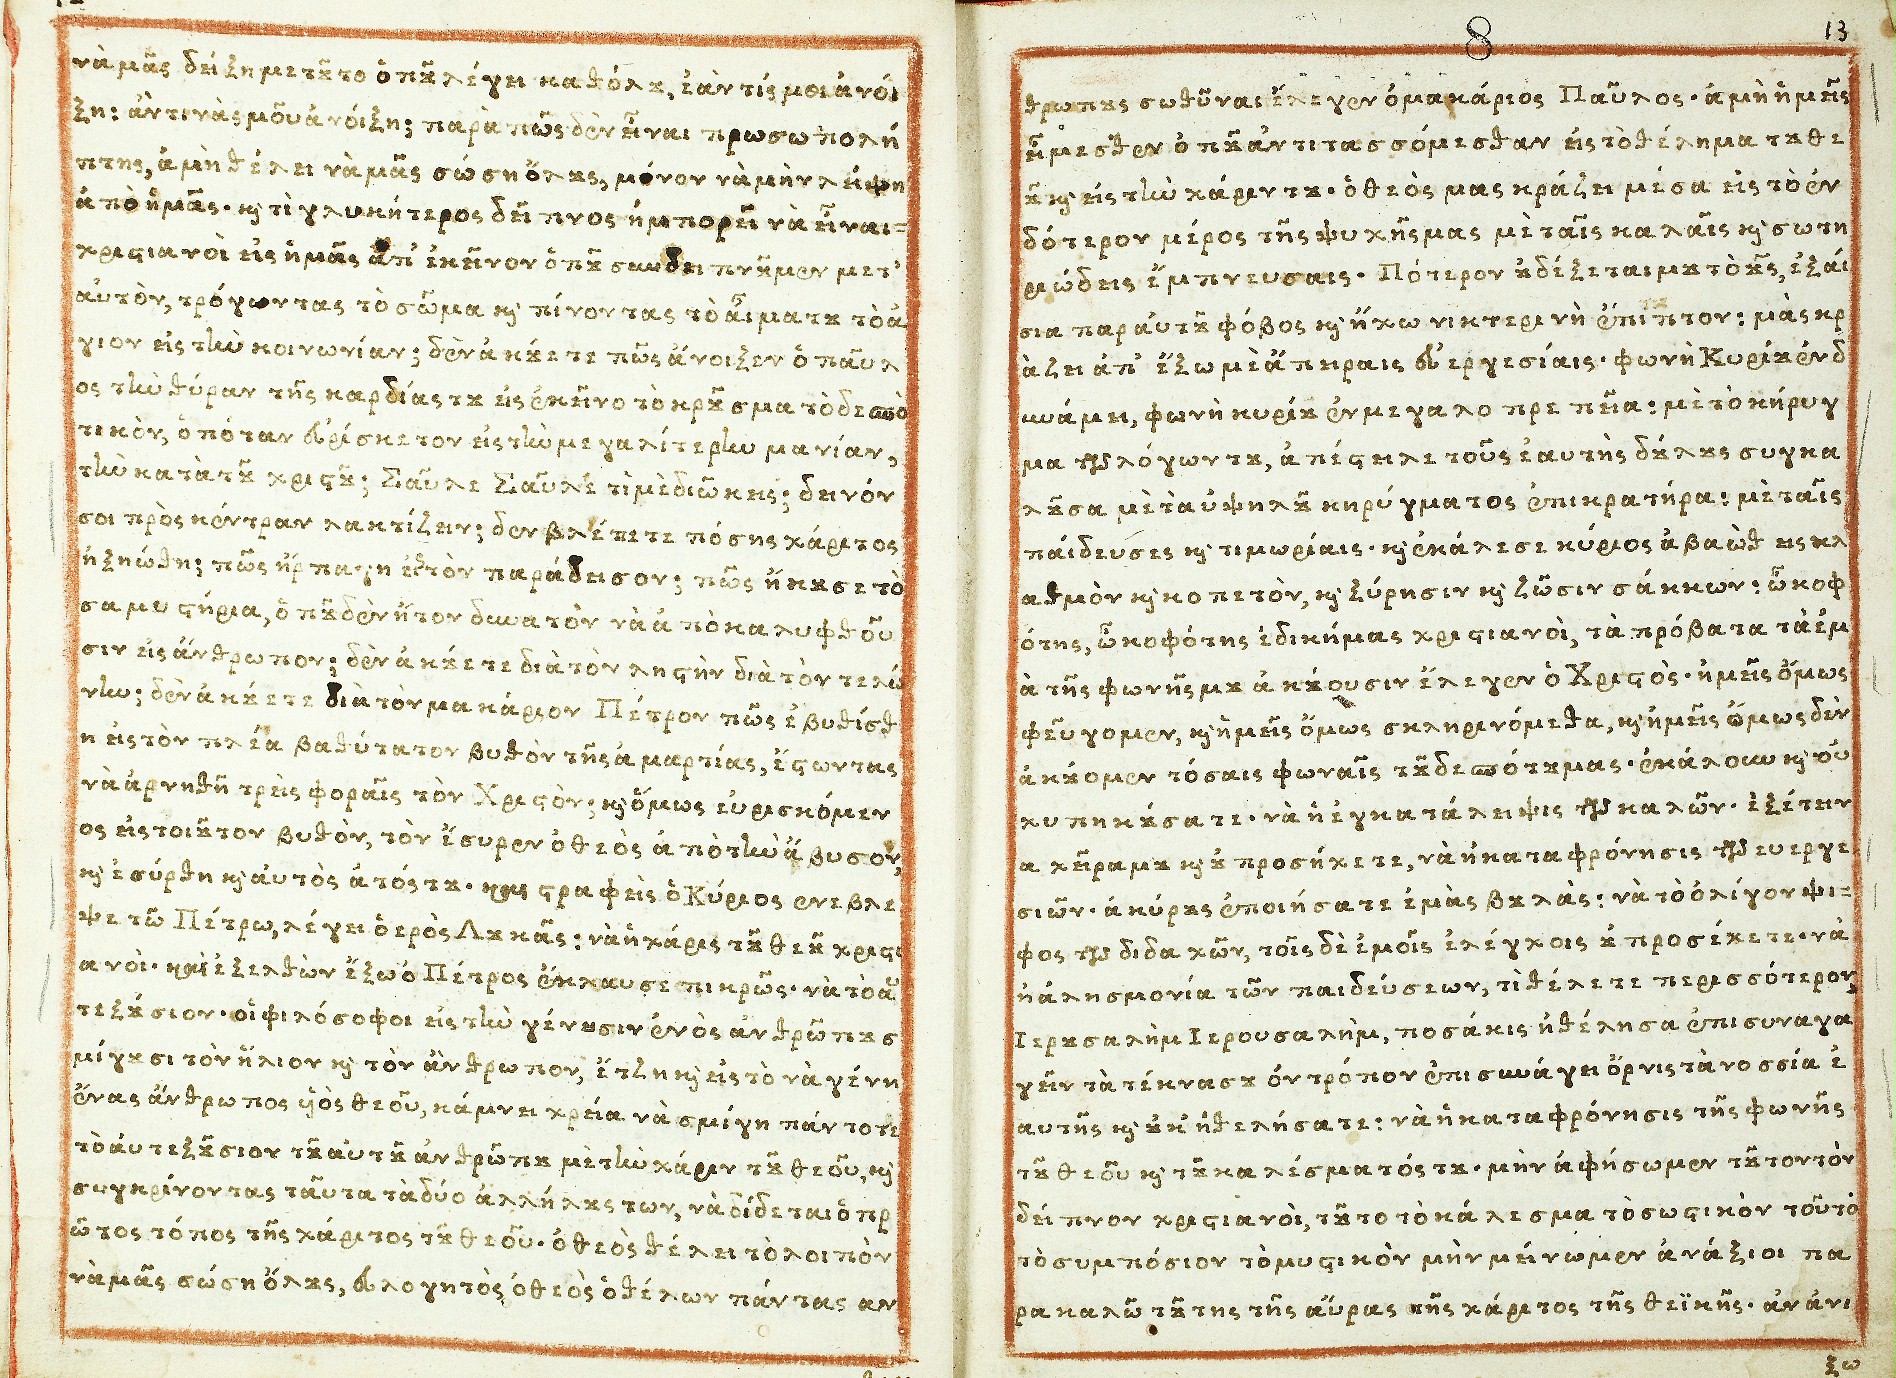 νὰ μᾶς δείξη μετȣ͂το ὁπȣ͂ λέγει καθόλȣ, ἐὰν τίς μοι ἀνοί
ξη: ἂν τινὰς μοῦ ἀνοίξη; παρὰ πῶς δὲν εἶναι προσωπολή
πτης, ἀμὴ θέλει νὰ μᾶς σώση ὅλȣς, μόνον νὰ μὴν λείψη
ἀπὸ ἡμᾶς. κ̀ τὶ γλυκήτερος δεῖπνος ἠμπορεῖ νὰ εἶναι=
χριϛιανοὶ εἰς ἡμᾶς ἀπ' ἐκεῖνον ὁπȣ͂ συνδειπνȣ͂μεν μετ'
αὐτὸν, τρόγωντας τὸ σῶμα κ̀ πίνοντας τὸ αἷμα τȣ τὸ ἅ
γιον εἰς τὴν κοινωνίαν; δὲν ἀκȣ́ετε πῶς ἄνοιξεν ὁ παῦλ
ος τὴν θύραν τῆς καρδίας τȣ εἰς ἐκεῖνο τὸ κρȣ͂σμα τὸ δεσπο
τικὸν, ὁπόταν εὑρίσκετον εἰς τὴν μεγαλίτερην μανίαν,
τὴν κατὰ τȣ͂ χριϛȣ͂; Σαῦλε Σαῦλε τὶ μὲ διῶκεις; δεινόν
σοι πρὸς κέντραν λακτίζειν; δεν βλέπετε πόσης χάριτος
ἠξηώθη; πῶς ἡρπάγη εἰς τὸν παράδεισον; πῶς ἤκȣσε τὸ
σα μυϛήρια, ὁπȣ͂ δὲν ἤτον δυνατὸν νὰ ἀποκαλυφθοῦ
σιν εἰς ἄνθρωπον; δὲν ἀκȣ́ετε διὰ τὸν ληϛὴν διὰ τὸν τελώ
νην; δὲν ἀκȣ́ετε διὰ τὸν μακάριον Πέτρον πῶς ἐβυθίσθ
η εἰς τὸν πλέα βαθύτατον βυθὸν τῆς ἁμαρτίας, ἔϛωντας
νὰ ἀρνηθῆ τρὲις φοραῖς τὸν Χριϛὸν; κ̀ ὅμως εὑρισκόμεν
ος εἰς τοιȣ͂τον βυθὸν, τὸν ἔσυρεν ὁ θεὸς ἀπὸ τὴν ἄβυσον,
κ̀ ἐσύρθη κ̀ αὐτὸς ἀτός τȣ. καὶ ϛραφεὶς ὁ Κύριος ενεβλε
ψε τῶ Πέτρω, λέγει ὁ ερὸς Λȣκᾶς: νὰ ἡ χάρις τȣ͂ θεȣ͂ χριϛι
ανοὶ. καὶ ἐξελθὼν ἔξω ὁ Πέτρος ἔκλαυσε πικρῶς. νὰ τὸ αὐ
τεξȣ́σιον. οἱ φιλόσοφοι εἰς τὴν γένεσιν ἑνὸς ἀνθρώπȣ σ
μίγȣσι τὸν ἥλιον κ̀ τὸν ἄνθρωπον, ἔτζη κ̀ εἰς τὸ νὰ γένη
ἕνας ἄνθρωπος ὑιὸς θεοῦ, κάμνει χρεία νὰ σμίγη πάντοτε
τὸ αὐτεξȣ́σιον τȣ͂ αὐτȣ͂ ἀνθρώπȣ μὲ τὴν χάριν τȣ͂ θεοῦ, κ̀
συγκρίνοντας ταῦτα τὰ δύο ἀλλήλȣς των, νὰ δίδεται ὁ πρ
ῶτος τόπος τῆς χάριτος τȣ͂ θεοῦ. ὁ θεὸς θέλει τὸ λοιπὸν
νὰ μᾶς σώση ὅλȣς, εὐλογητὸς ὁ θεὸς ὁ θέλων πάντας αν
8
13
θρωπȣς σωθῦναι ἔλεγεν ὁ μακάριος Παῦλος. ἀμὴ ἡμεῖς
εἴμεσθεν ὁπȣ͂ ἀντιτασσόμεσθαν εἰς τὸ θέλημα τȣ θε
ȣ͂ κ̀ εἰς τὴν χάριν τȣ. ὁ θεὸς μας κράζει μέσα εἰς τὸ ἐν
δότερον μέρος τῆς ψυχῆς μας μὲ ταῖς καλαῖς κ̀ σωτη
ριώδεις ἔμπνευσαις. Πότερον ȣ δέξεται μȣ τὸ ȣ͂ς, ἐξαί
σια παρ' αυτȣ͂ φόβος κ̀ ἤχω νικτερινὴ ἐπίπτον: μὰς κρ
ὰζει ἀπ' ἔξω μὲ ἄπειραις εὐεργεσίαις. φωνὴ Κυρίȣ ἐν δ
υνάμει, φωνὴ κυρίȣ ἐν μεγαλοπρεπεῖα: μὲ τὸ κήρυγ
μα τῶν λόγων τȣ, ἀπέϛειλε τοῦς ἑαυτὴς δȣ́λȣς συγκα
λȣ͂σα μὲτα ὑψηλȣ͂ κηρύγματος ἐπὶ κρατήρα: μὲ ταῖς
πάιδευσες κ̀ τιμωρίαις. κ̀ ἐκάλεσε κύριος ἀβαὼθ εις κλ
αθμὸν κ̀ κοπετὸν, κ̀ ξύρησιν κ̀ ζῶσιν σάκκων: ὦ κοφ
ότης, ὦ κοφότης ἐδική μας χριϛιανοὶ, τὰ πρόβατα τὰ ἐμ
ὰ τῆς φωνῆς μȣ ἀκȣ́ουσιν ἔλεγεν ὁ Χριϛὸς. ἡμεῖς ὅμως
φεῦγομεν, κ̀ ἡμεῖς ὅμως σκληρινόμεθα, κ̀ ἡμεῖς ὅμως δὲν
ἀκȣ́ομεν τόσαις φωναῖς τȣ͂ δεσπότȣ μας. ἐκάλουν κ̀ οὐ
χ ὑπηκȣ́σατε. νὰ ἡ ἐγκατάλειψις τῶν καλῶν. ἐξέτειν
α χεῖρα μȣ κ̀ ȣ προσήχετε, νὰ ἡ καταφρόνησις τῶν ευεργε
σιῶν. ἀκύρȣς ἐποιήσατε ἐμὰς βȣλὰς: νὰ τὸ ὀλίγον ψι=
φος τῶν διδαχῶν, τοῖς δὲ ἐμοῖς ἐλέγχοις ȣ προσέχετε. νὰ
ἡ ἀλησμονία τῶν παιδεύσεων, τὶ θέλετε περισσότερον,
Ιερȣσαλὴμ Ιερουσαλὴμ, ποσάκις ἠθέλησα ἐπισυναγα
γεῖν τὰ τέκνα σȣ ὁν τρόπον ἐπισυνάγει ὄρνις τὰ νοσσία ἑ
αυτῆς κ̀ ȣκ ἠθελήσατε: νὰ ἡ καταφρόνησις τῆς φωνῆς
τȣ͂ θεοῦ κ̀ τȣ͂ καλέσματός τȣ. μὴν ἀφήσωμεν τȣ͂τον τὸν
δείπνον χριϛιανοὶ, τȣ͂το τὸ κάλεσμα τὸ σωϛικὸν τοῦτο
τὸ συμπόσιον τὸ μυϛικὸν μὴν μείνωμεν ἀνάξιοι πα
ρακαλῶ τȣ͂της τῆς αὔρας τῆς χάριτος τῆς θεϊκῆς. ἀν ἀνι
ξω